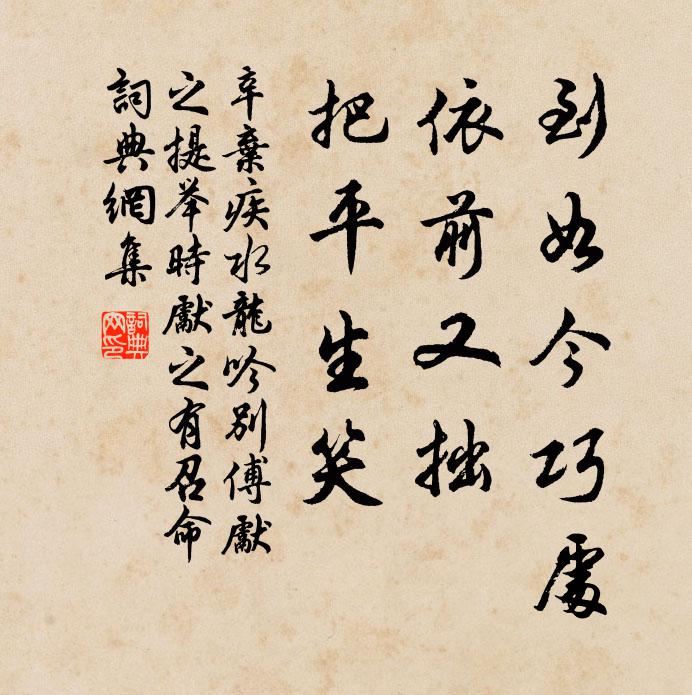 到如今巧處
依前又拙
把平生笑
辛棄疾水龍吟別傅獻
之提举時獻之有召命
詞典網集
詞典
网印